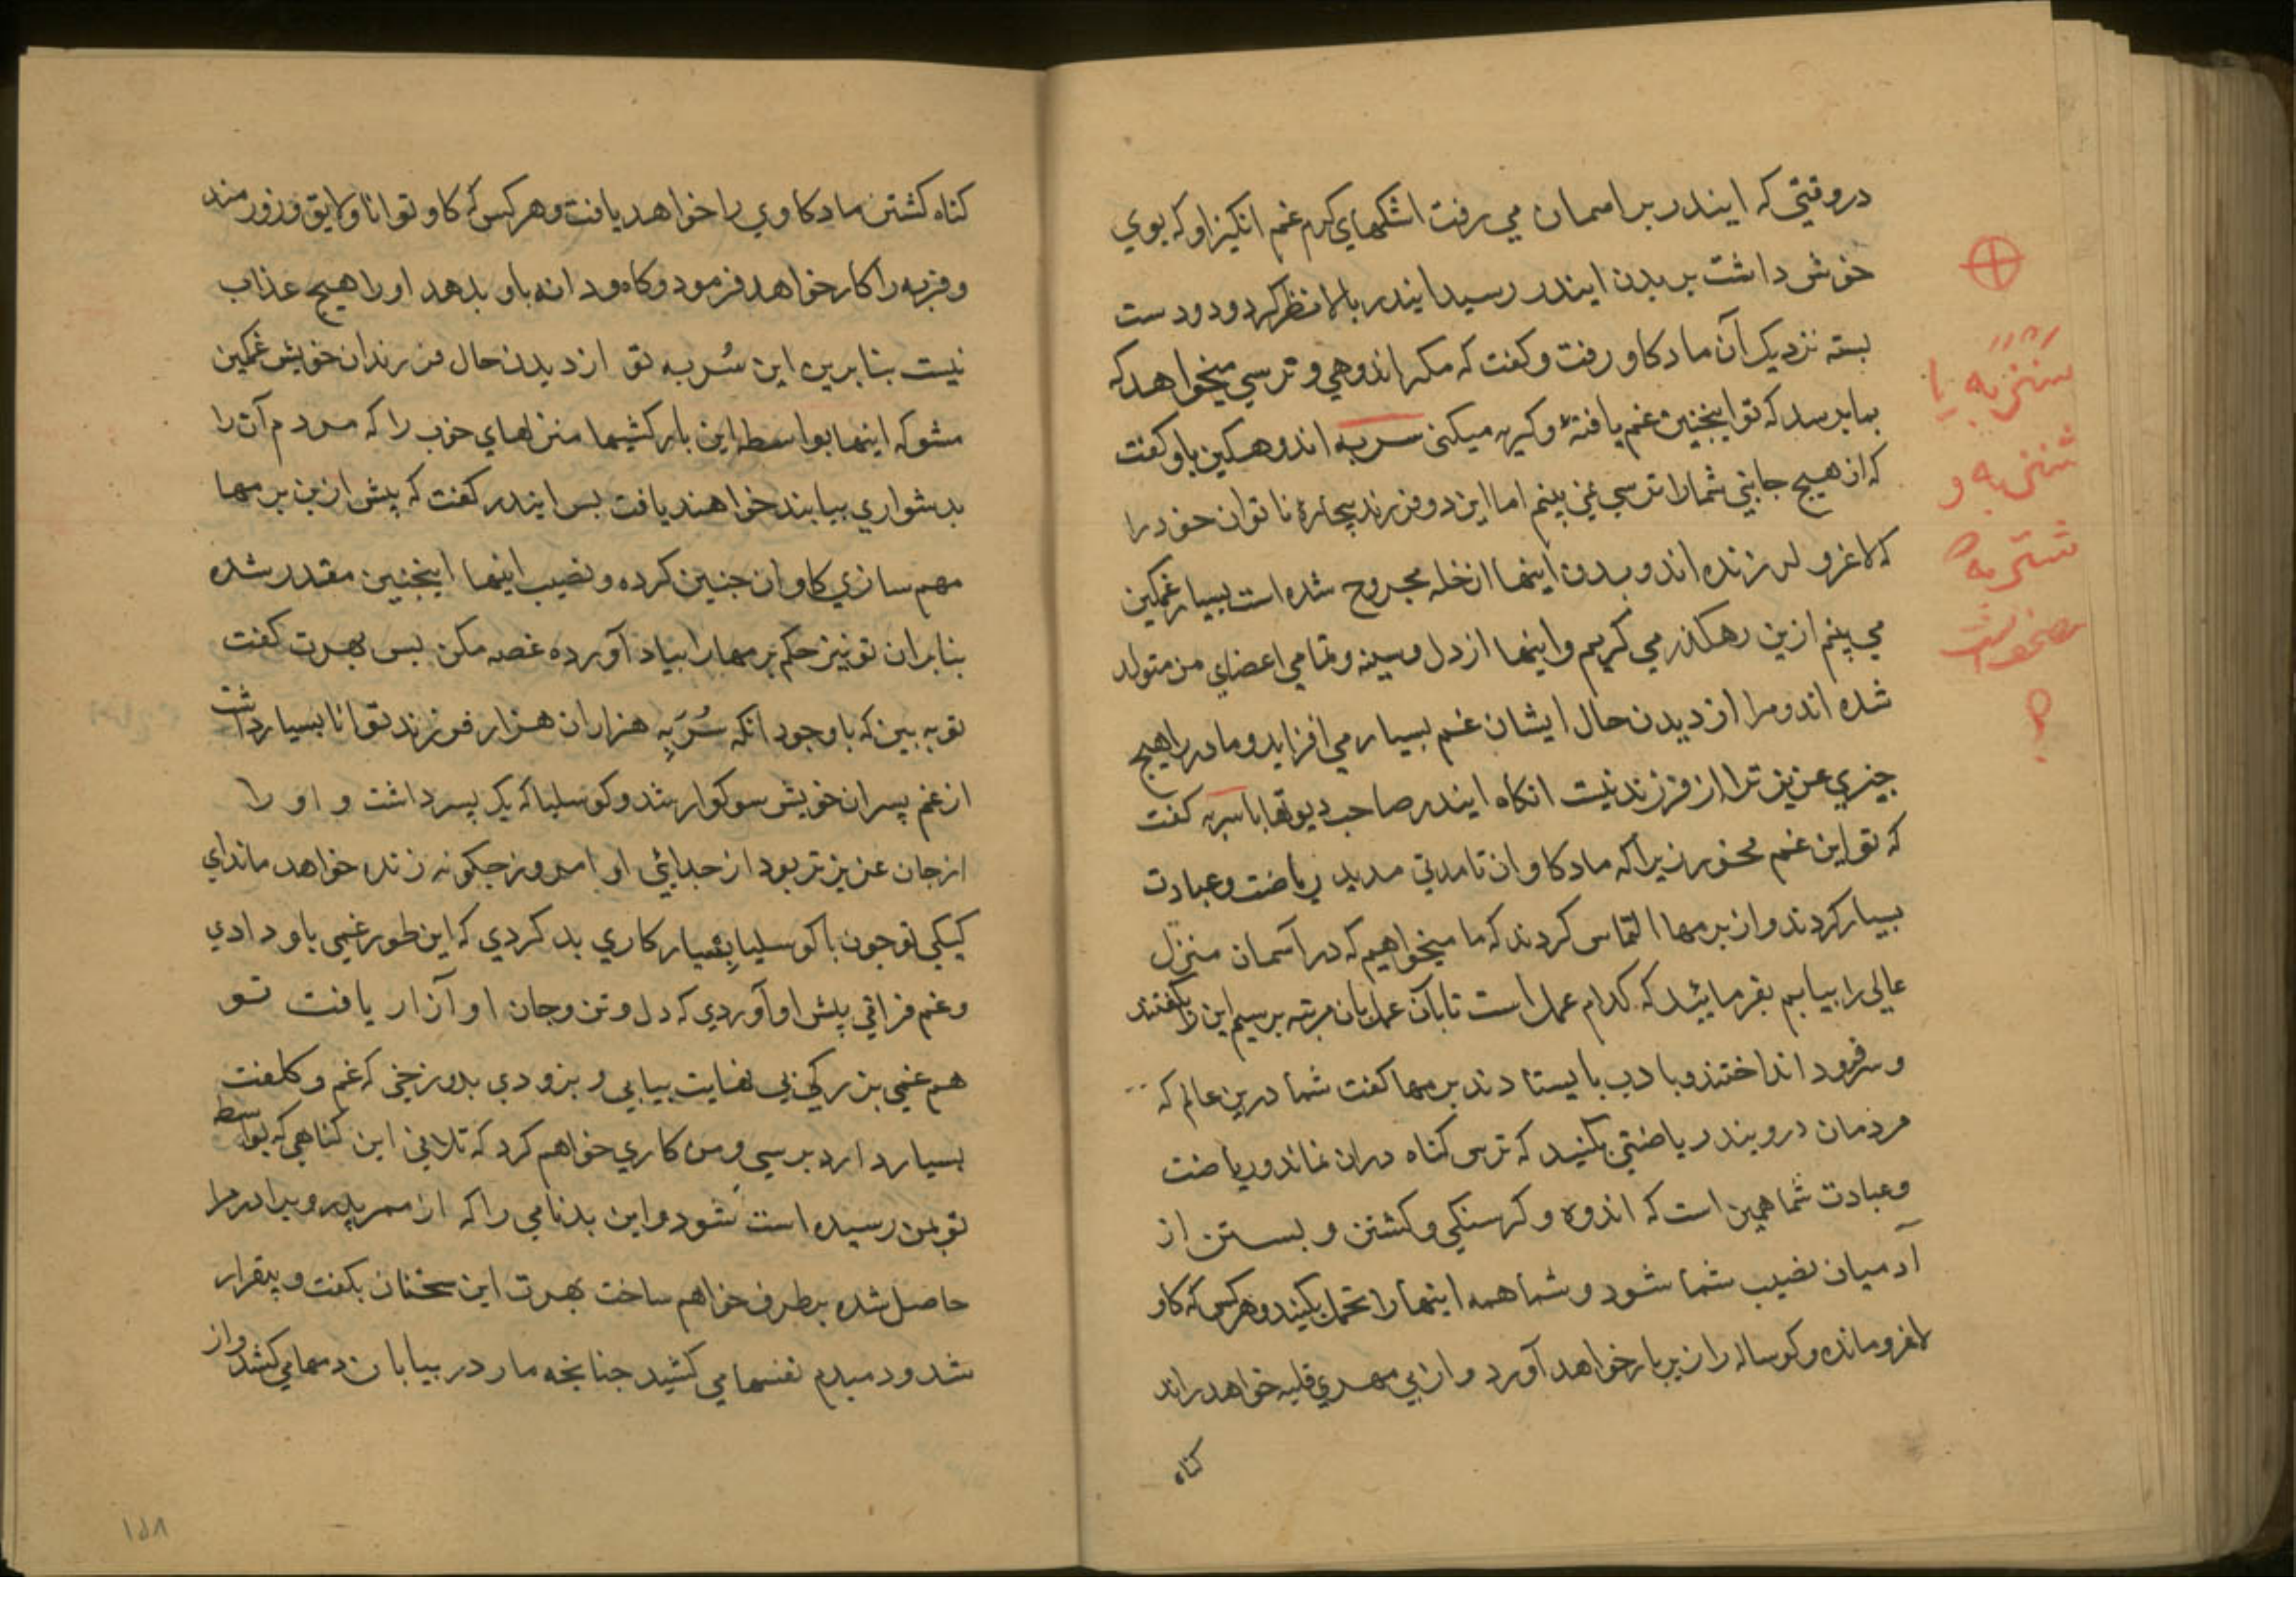 در وقتی که ایندر بر اسمان می رفت اشکهای کرم غم انکیز او که بوی
خوش داشت بر بدن ایندر رسید ایندر بالا نظر کرد و دو دست
بسته نزدیک آن ماد کاو رفت و کفت که مکر اندوهی و ترسی میخواهد که
بما برسد که تو اینچنین غم یافتهٔ و کریه میکنی سربه اندوهکین باو کفت
که از هیچ جایی شما را ترسی نمی بینم اما این دو فرزند بیچارهٔ ناتوان خود را
که لاغر و لرزنده اند و بدن اینها از خله مجروح شده است بسیار غمکین
می بینم ازین رهکذر می کریم و اینها از دل و سینه و تمامی اعضای من متولد
شده اند و مرا از دیدن حال ایشان غم بسیار می افزاید و مادر را هیچ
چیزی عزیز تر از فرزند نیست انکاه ایندر صاحب دیوتها با سربه کفت
که تو این غم مخور زیرا که ماد کاوان تا مدتی مدید ریاضت و عبادت
بسیار کردند و از برمها التماس کردند که ما میخواهیم که در آسمان منزل
عالی را بیابیم بفرمائید که کدام عمل است تا بآن عمل بان مرتبه برسیم این را بکفتند
و سر فرود انداختند و با دب بایستادند برمها کفت شما درین عالم که
مردمان درو بیند ریاضتی بکنید که ترس کناه دران نماند و ریاضت
و عبادت شما همین است که اندوه و کرسنکی و کشتن و بستن از
آدمیان نصیب شما شود و شما همه اینها را تحمل بکنید و هر کس که کاو
لاغر و مانده و کوساله را زیر بار خواهد آورد و از بی مهری قلبه خواهد راند
کناه
سنزبه یا
شنزبه و
شتربه
؟
کناه کشتن ماد کاوی را خواهد یافت و هر کس که کاو توانا و لایق و زورمند
و فربه را کار خواهد فرمود و کاه و دانه باو بدهد او را هیچ عذاب
نیست بنابرین این سُربه تو از دیدن حال فرزندان خویش غمکین
مشو که اینها بواسطه این بارکشیها منزلهای خوب را که مردم آن را
بدشواری بیابند خواهند یافت بس ایندر کفت که پیش ازین برمها
مهم سازی کاوان جنین کرده و نصیب اینها اینچنین مقدر شده
بنابران تو نیز حکم برمها را بیاد آورده غصه مکن بس بهرت کفت
تو به بین که با وجود انکه سُرَبِه هزاران هزار فرزند توانا بسیار داشت
از غم پسران خویش سوکوار شد و کوسلیا که یک پسر داشت و او را
از جان عزیزتر بود از جدایی او امروز جکونه زنده خواهد ماند ای
کیکی تو جون با کوسلیا بسیار کاری بد کردی که این طور غمی باو دادی
و غم فراقی پیش او آوردی که دل و تن و جان او آزار یافت تو
هم غمی بزرکی بی نهایت بیابی و بزودی بدوزخی که غم و کلفت
بسیار دارد برسی و من کاری خواهم کرد که تلافی این کناهی که بواسطه
تو بمن رسیده است بشود و این بدنامی را که از ممر پدر و برادر مرا
حاصل شده برطرف خواهم ساخت بهرت این سخنان بکفت و بیقرار
شد و دمبدم نفسها می کشید جنانچه مار در بیابان دمها می کشد و از
۱۵۸